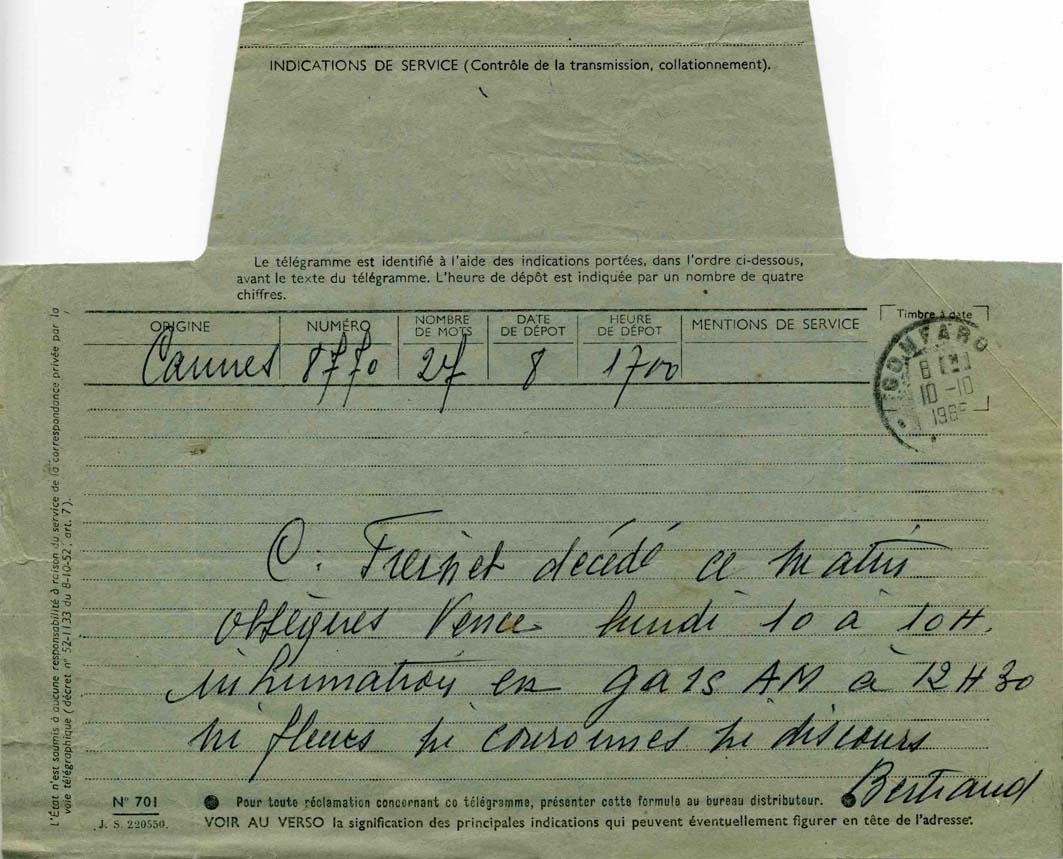 INDICATIONS DE SERVICE (Contrôle de la transmission, collationnement).
Le télégramme est identifié à l'aide des indications portées, dans l'ordre ci-dessous,
avant le texte du télégramme. L'heure de dépôt est indiquée par un nombre de quatre
chiffres.
ORIGINE NUMÉRO NOMBRE DE MOTS DATE DE DÉPOT HEURE DE DÉPOT MENTIONS DE SERVICE Timbre à date
Cannes 8770 27 8 1700
GONFARO
10-10
C. Freinet décédé ce matin
obsèques Vence lundi 10 à 10H.
inhumation en gars AM à 12H30
ni fleurs ni couronnes ni discours
Bertrand
N° 701
J. S. 220550.
Pour toute réclamation concernant ce télégramme, présenter cette formule au bureau distributeur.
VOIR AU VERSO la signification des principales indications qui peuvent éventuellement figurer en tête de l'adresse.
L'État n'est soumis à aucune responsabilité à raison du service de la correspondance privée par la
voie télégraphique (décret n° 52-1133 du 8-10-52, art. 7).